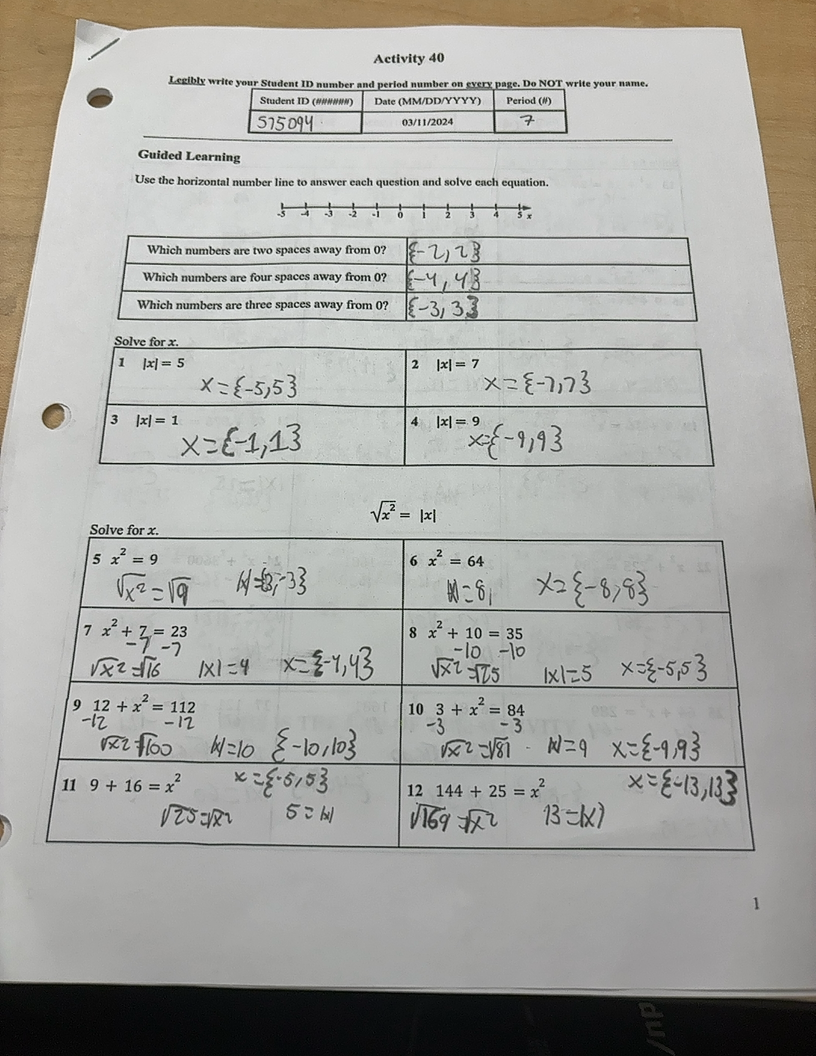 Activity 40
Legibly write your Student ID number and period number on every page. Do NOT write your name.
Student ID (######) Date (MM/DD/YYYY) Period (#)
575094 03/11/2024 7
Guided Learning
Use the horizontal number line to answer each question and solve each equation.
-5 -4 -3 -2 -1 0 1 2 3 4 5 x
Which numbers are two spaces away from 0? {-2, 2}
Which numbers are four spaces away from 0? {-4, 4}
Which numbers are three spaces away from 0? {-3, 3}
Solve for x.
1 |x| = 5
x={-5,5}
2 |x| = 7
x={-7,7}
3 |x| = 1
x={-1,1}
4 |x| = 9
x={-9,9}
√x² = |x|
Solve for x.
5 x² = 9
√x² = √9 |x|={3,-3}
6 x² = 64
|x|=8, x={-8,8}
7 x² + 7 = 23
-7 -7
√x² = √16 |x|=4 x={-4,4}
8 x² + 10 = 35
-10 -10
√x² = √25 |x|=5 x={-5,5}
9 12 + x² = 112
-12 -12
√x² = √100 |x|=10 {-10,10}
10 3 + x² = 84
-3 -3
√x² = √81 |x|=9 x={-9,9}
11 9 + 16 = x² x={-5,5}
√25 = √x² 5=|x|
12 144 + 25 = x² x={-13,13}
√169 = √x² 13=|x|
1